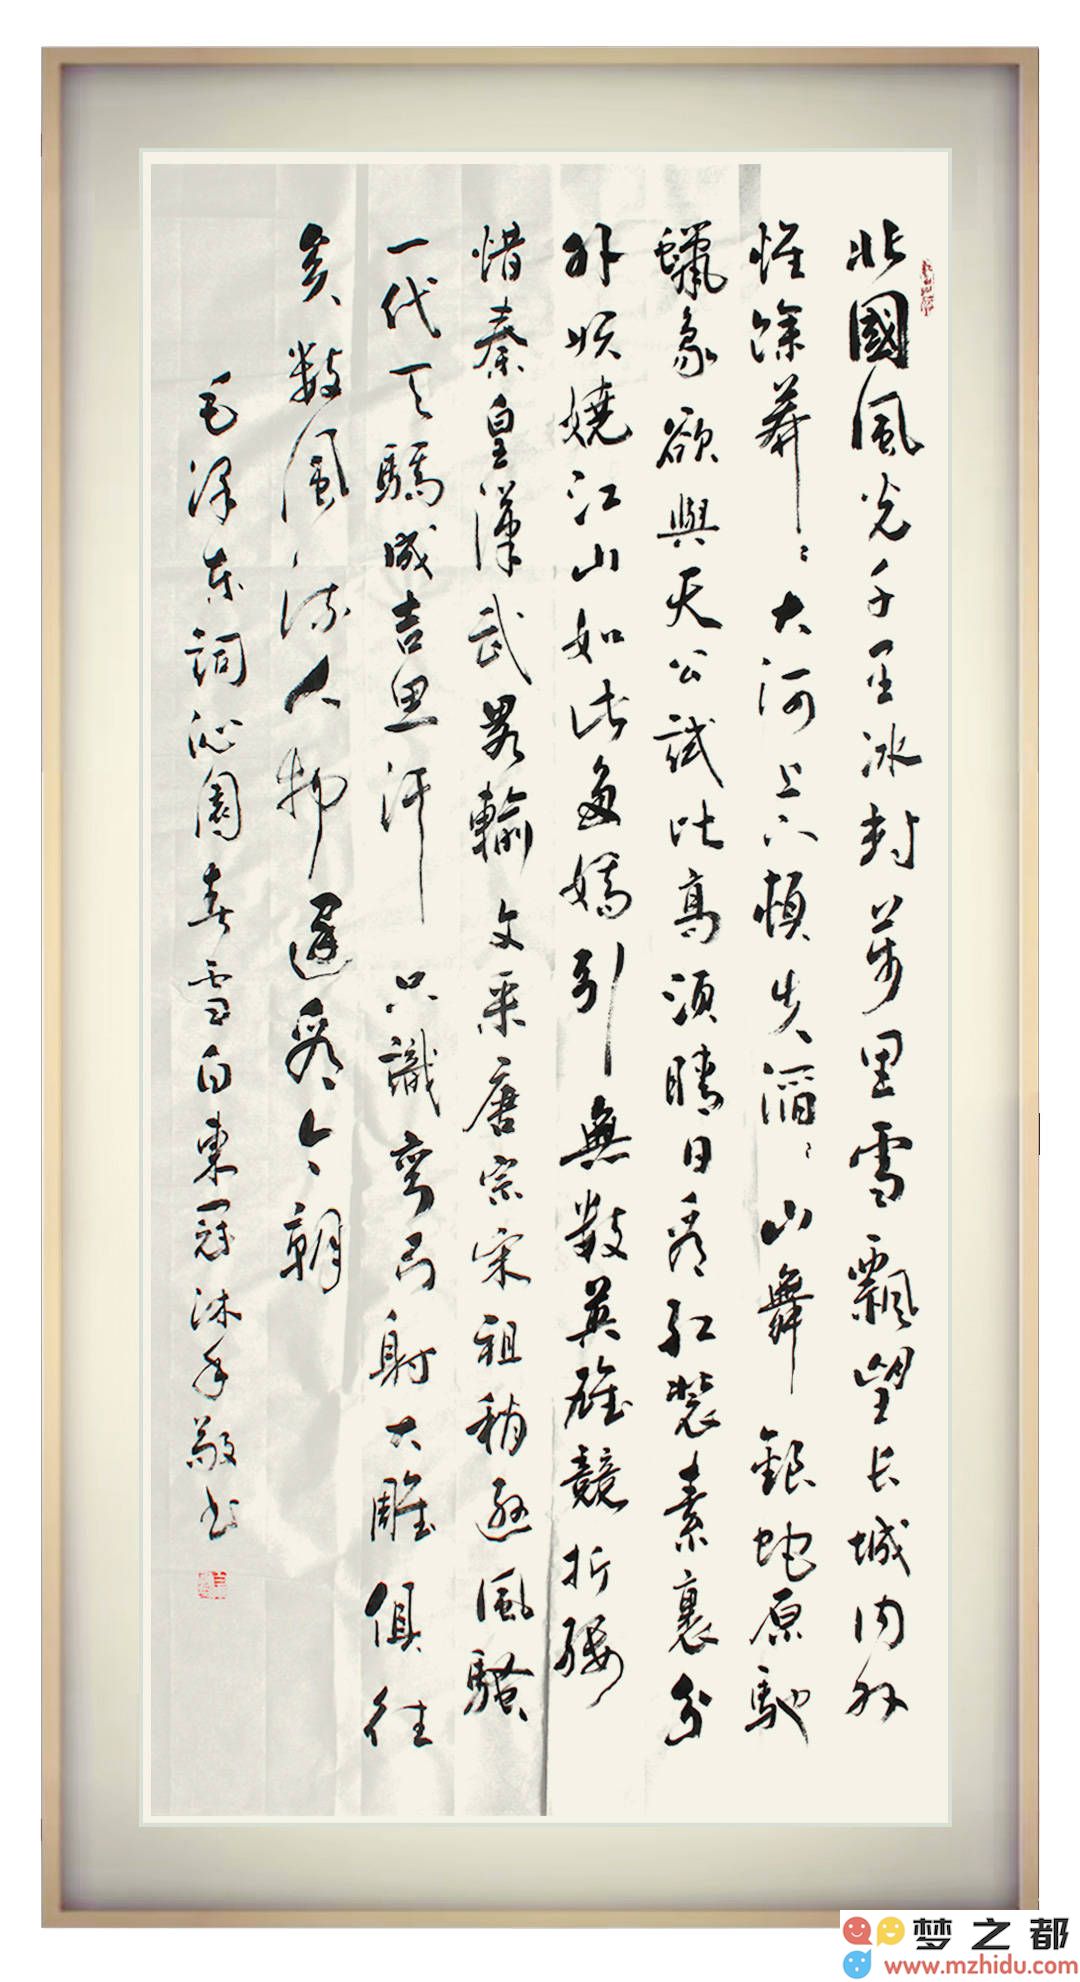 北國風光千里冰封萬里雪飄望长城内外
惟餘莽〻大河上下頓失滔〻山舞銀蛇原馳
蠟象欲與天公試比高須晴日看红裝素裹分
外妖嬈江山如此多嬌引無數英雄競折腰
惜秦皇漢武畧輸文采唐宗宋祖稍遜風騷
一代天驕成吉思汗只識彎弓射大雕俱往
矣数風流人物還看今朝
毛泽东詞沁園春雪白東冠沐手敬书
梦之都
www.mzhidu.com